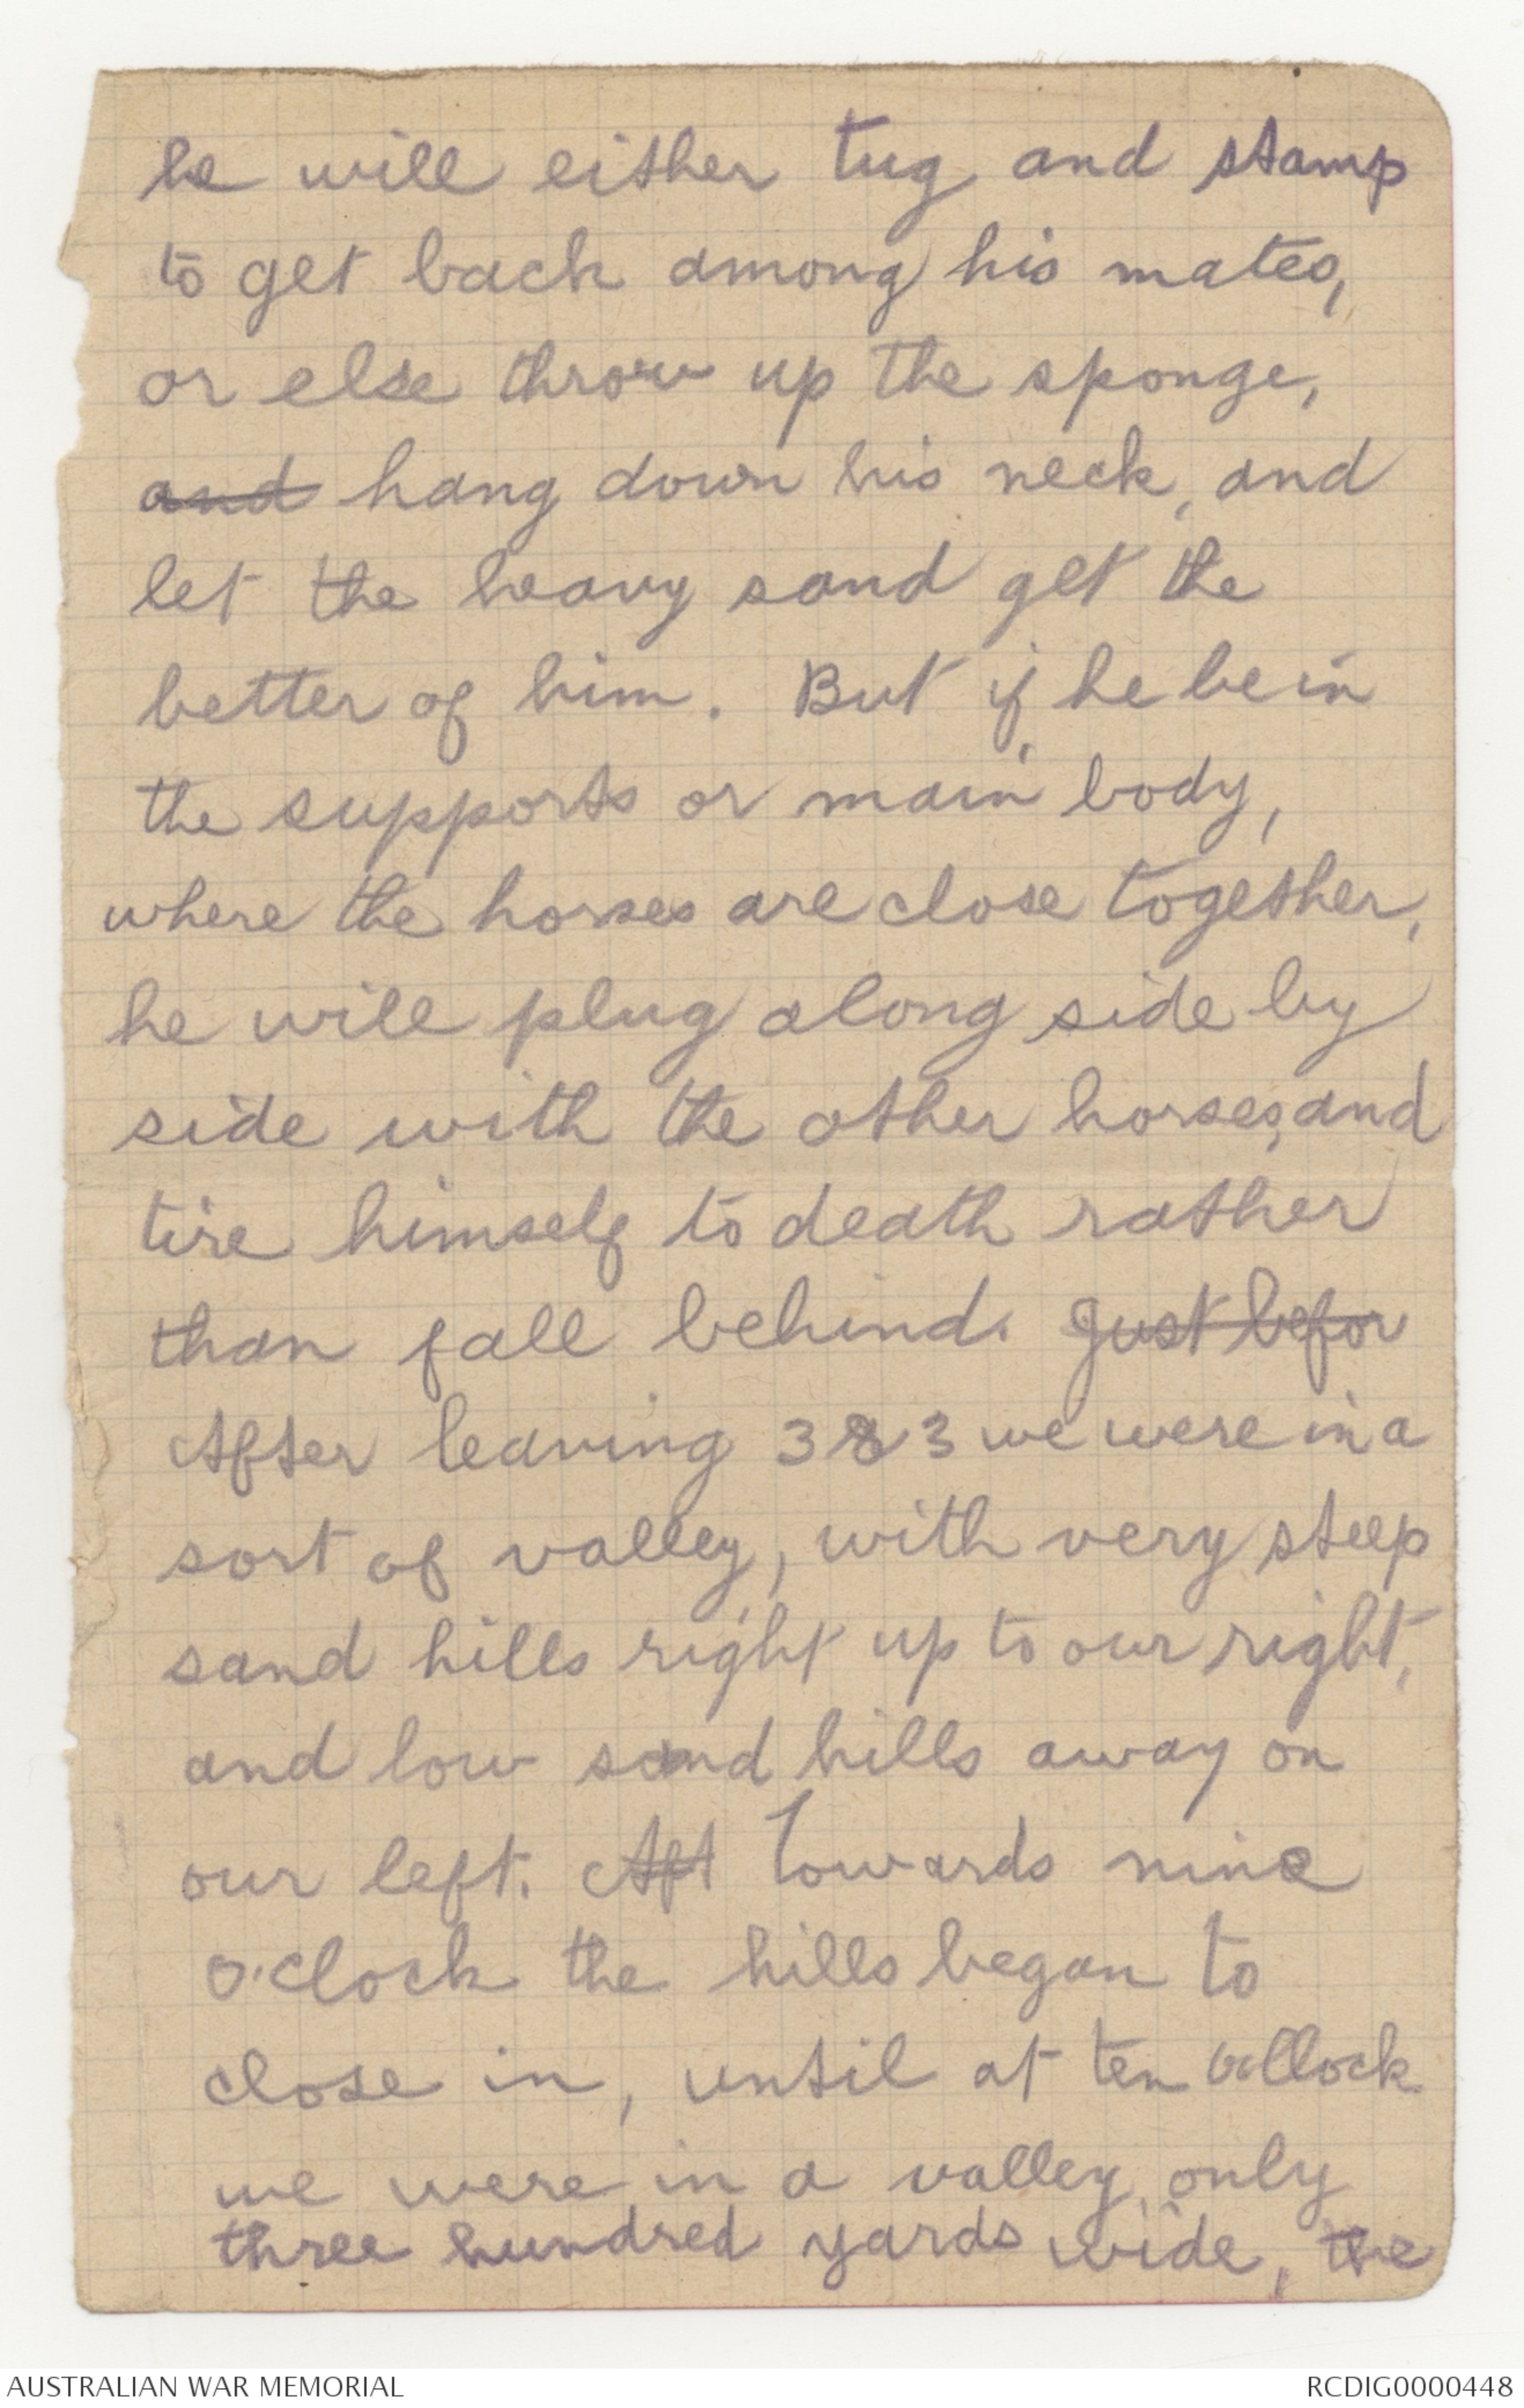 he will either tug and stamp
to get back among his mates,
or else throw up the sponge,
and hang down his neck, and
let the heavy sand get the
better of him. But if he be in
the supports or main body,
where the horses are close together,
he will plug along side by
side with the other horses, and
tire himself to death rather
than fall behind. Just befor
After leaving 383 we were in a
sort of valley, with very steep
sand hills right up to our right,
and low sand hills away on
our left. Aft Towards nine
o'clock the hills began to
close in, until at ten o'clock
we were in a valley only
three hundred yards wide, the
AUSTRALIAN WAR MEMORIAL
RCDIG0000448